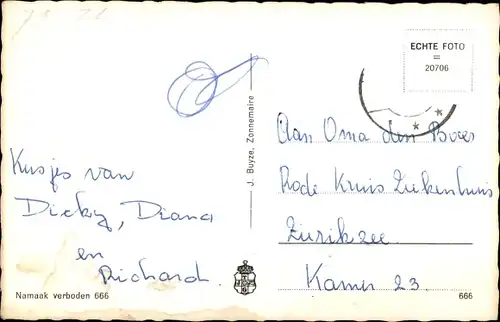 ECHTE FOTO
=
20706
J. Buyze, Zonnemaire
Kusjes van
Dicky, Diana
en
Richard.
Aan Oma den Boer
Rode Kruis Ziekenhuis
Zierikzee.
Kamer 23.
Namaak verboden 666
666